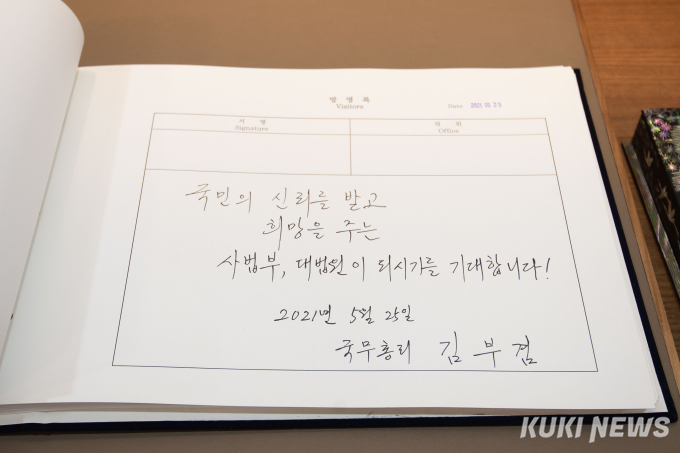 방 명 록
Visitors
Date 2021. 05. 25
서 명
Signature
직 위
Office
국민의 신뢰를 받고
희망을 주는
사법부, 대법원이 되시기를 기대합니다!
2021년 5월 25일
국무총리 김 부 겸
KUKI NEWS